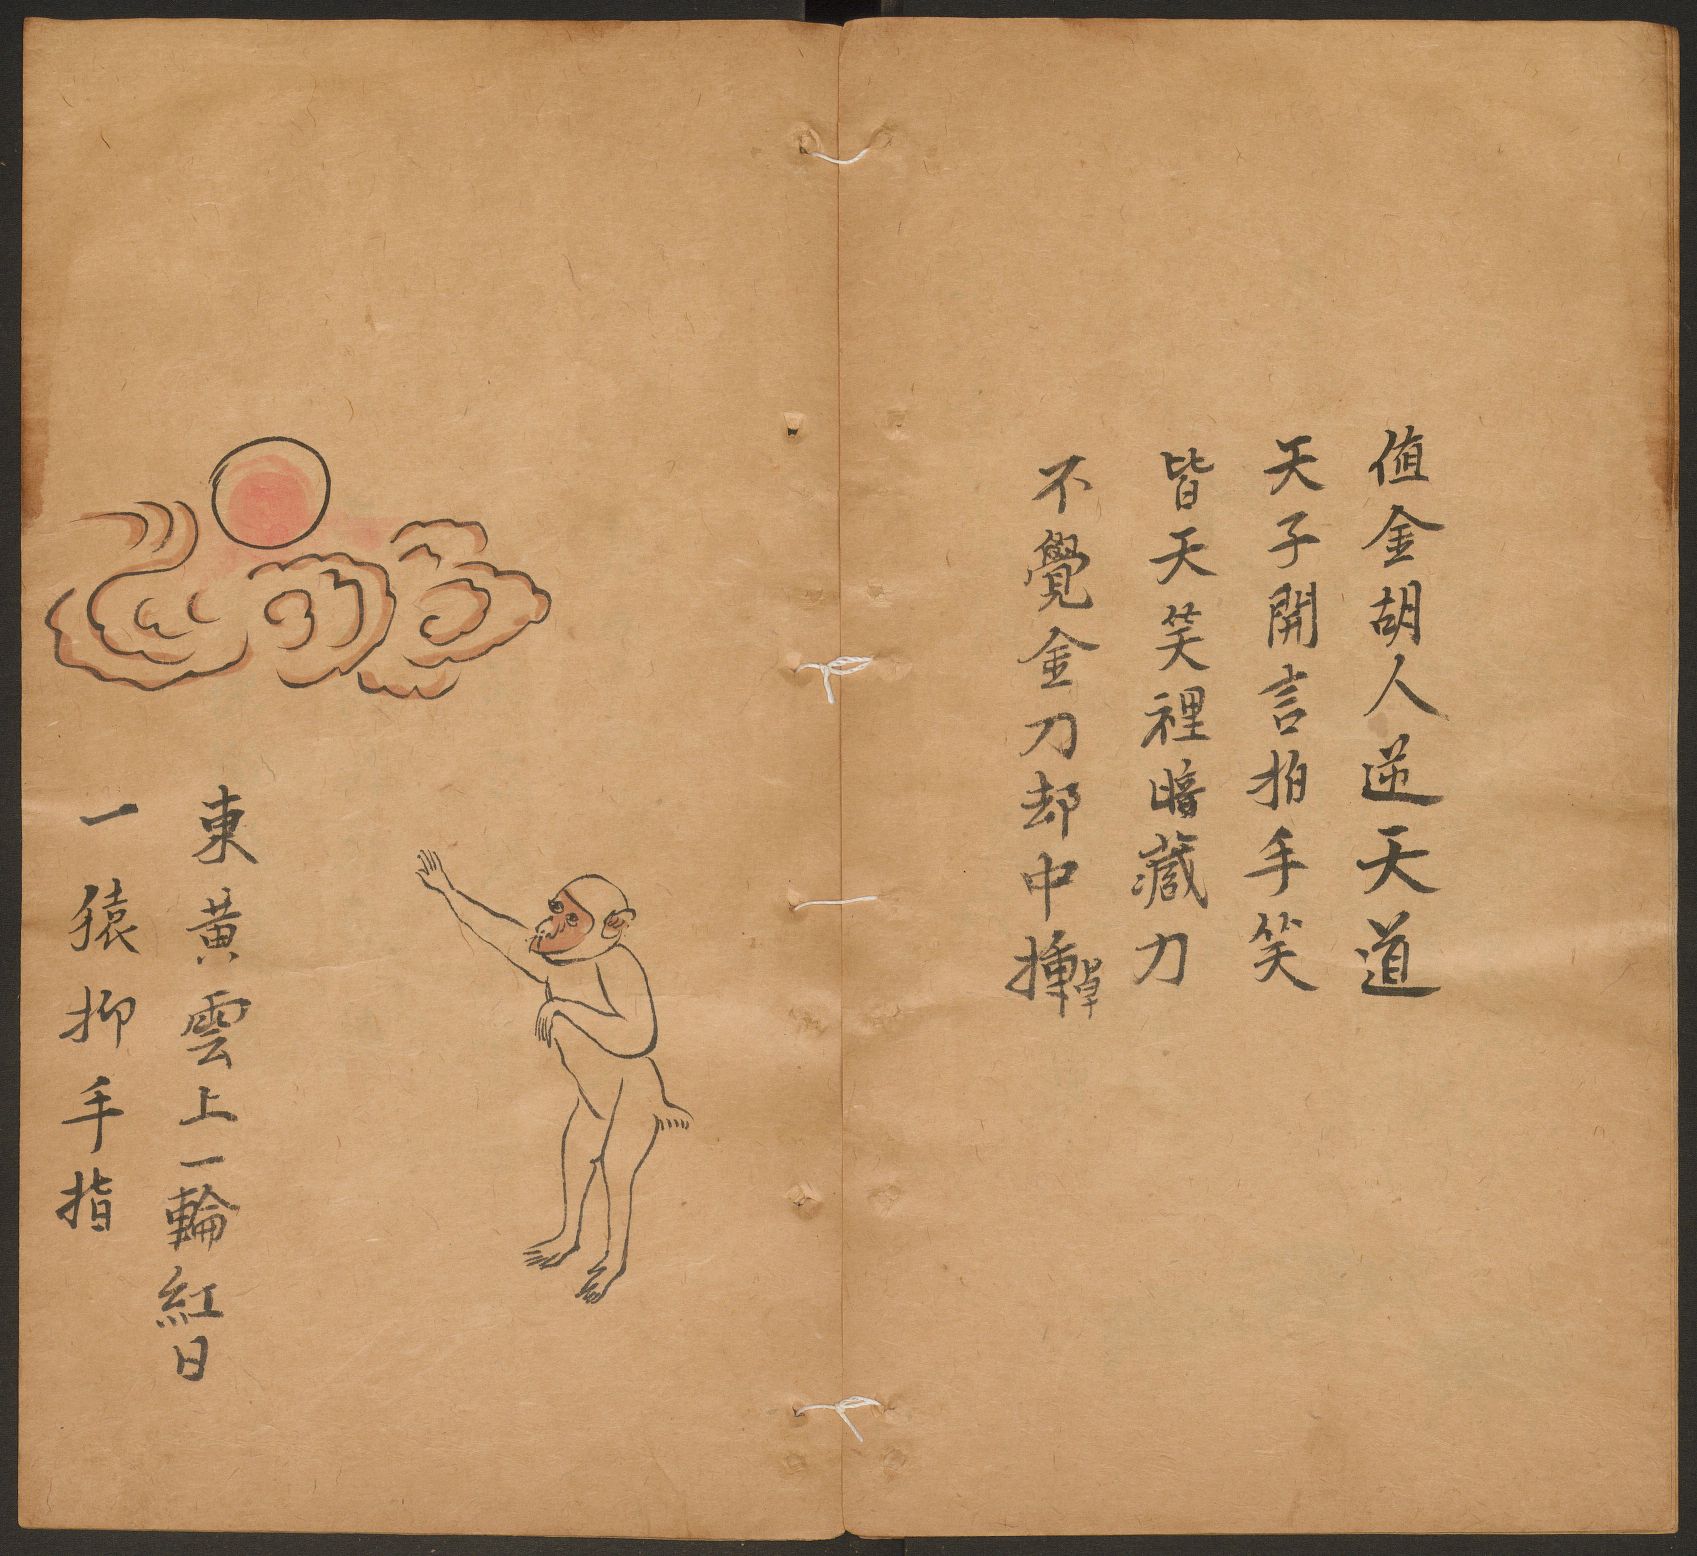 值金胡人逆天道
天子開言拍手笑
皆天笑裡暗藏力
不覺金刀却中揰
東黄雲上一輪紅日
一猿抑手指